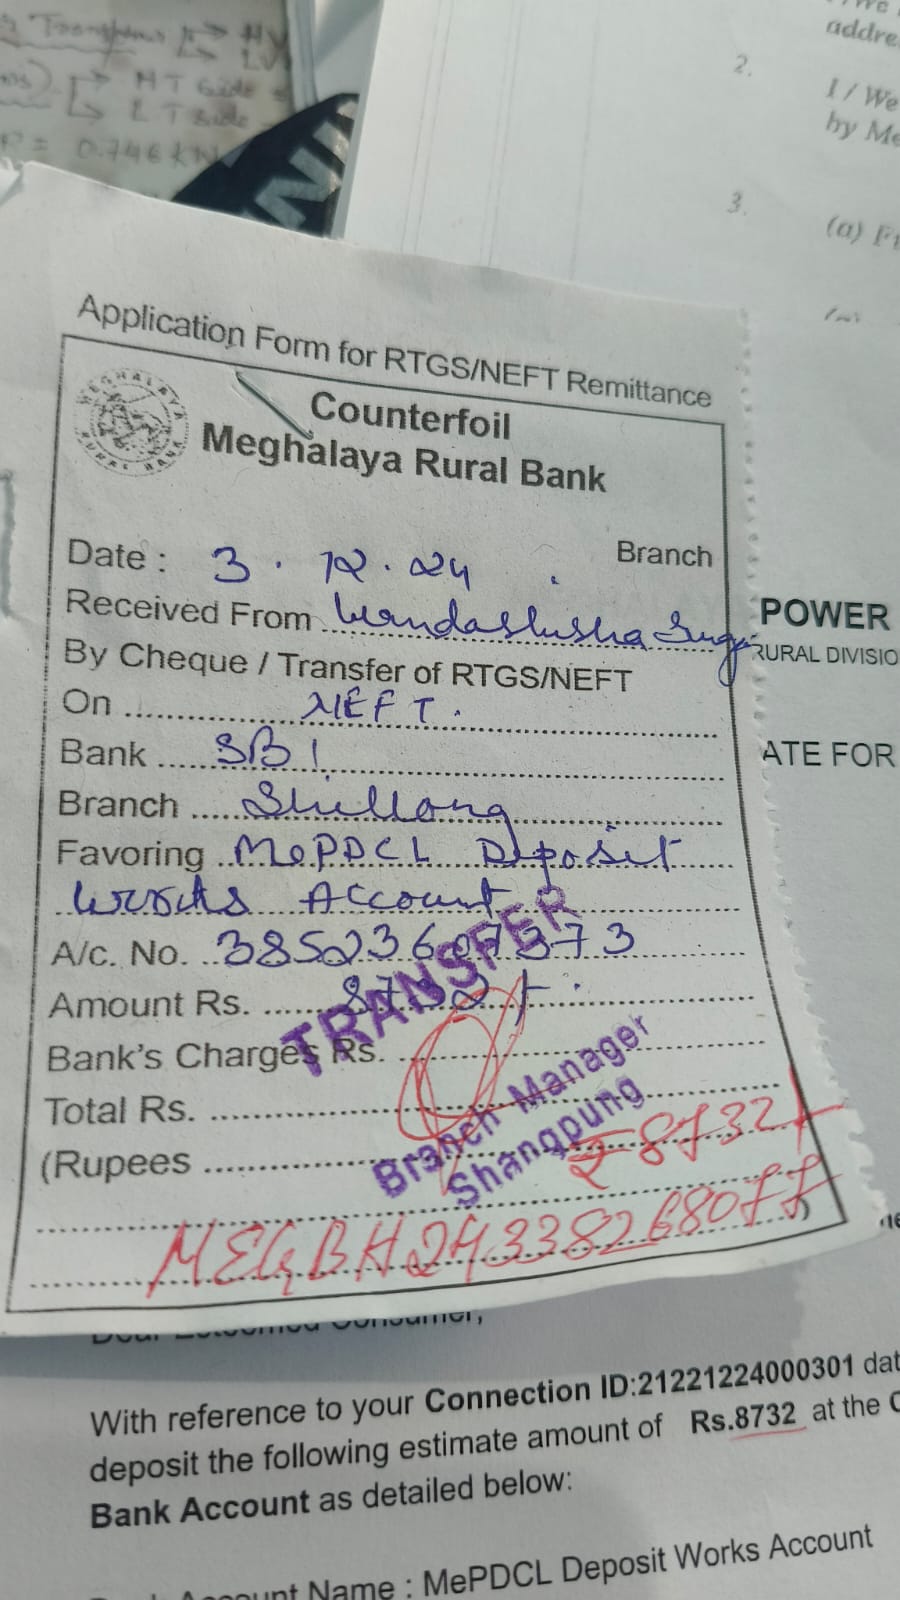 HT Side
LT Side
= 0.746 KN
addre
2.
I / We
by Me
3.
(a) Fi
Application Form for RTGS/NEFT Remittance
MEGHALAYA RURAL BANK
Counterfoil
Meghalaya Rural Bank
Date : 3.12.24 Branch
Received From
By Cheque / Transfer of RTGS/NEFT
On NEFT.
Bank SBI
Branch Shillong
Favoring MePDCL Deposit
Works Account
A/c. No. 38523607373
Amount Rs. 8732/-
TRANSFER
Bank's Charges Rs.
Total Rs.
Branch Manager
Shangpung
(Rupees
₹ 8732/-
POWER
RURAL DIVISIO
ATE FOR
Dear Esteemed Consumer,
With reference to your Connection ID:21221224000301 dat
deposit the following estimate amount of Rs.8732 at the
Bank Account as detailed below:
Account Name : MePDCL Deposit Works Account